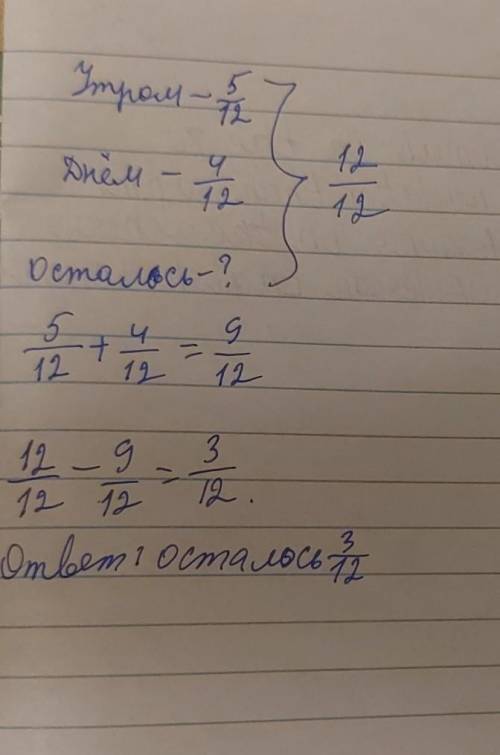 Утром - 5/12
Днём - 4/12
12/12
осталось - ?
5/12 + 4/12 = 9/12
12/12 - 9/12 = 3/12.
Ответ: осталось 3/12